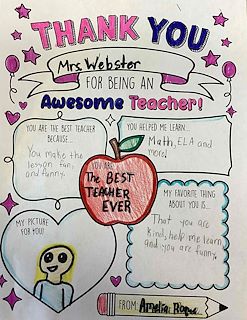 THANK YOU
Mrs. Webster
FOR BEING AN
Awesome Teacher!
YOU ARE THE BEST TEACHER
BECAUSE...
You make the
lesson fun,
and funny.
YOU HELPED ME LEARN...
Math, ELA and
more!
YOU ARE
The BEST
TEACHER
EVER
MY FAVORITE THING
ABOUT YOU IS...
That you are
kind, help me learn
and you are funny.
MY PICTURE
FOR YOU!
FROM: Amelia